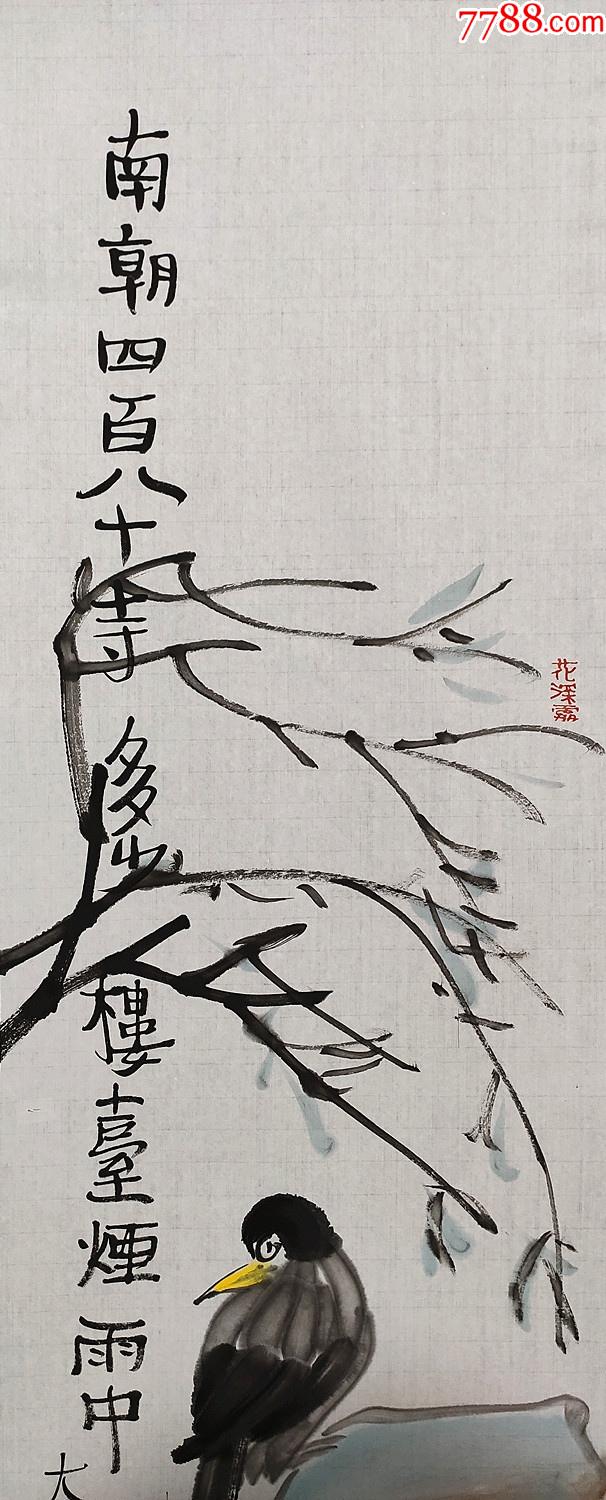 7788.com
南朝四百八十寺 多少樓臺煙雨中
花深霧
大